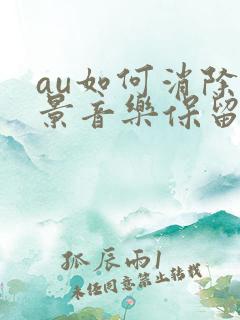 au如何消除
景音樂保留
孤辰雨1
未经同意禁止转载